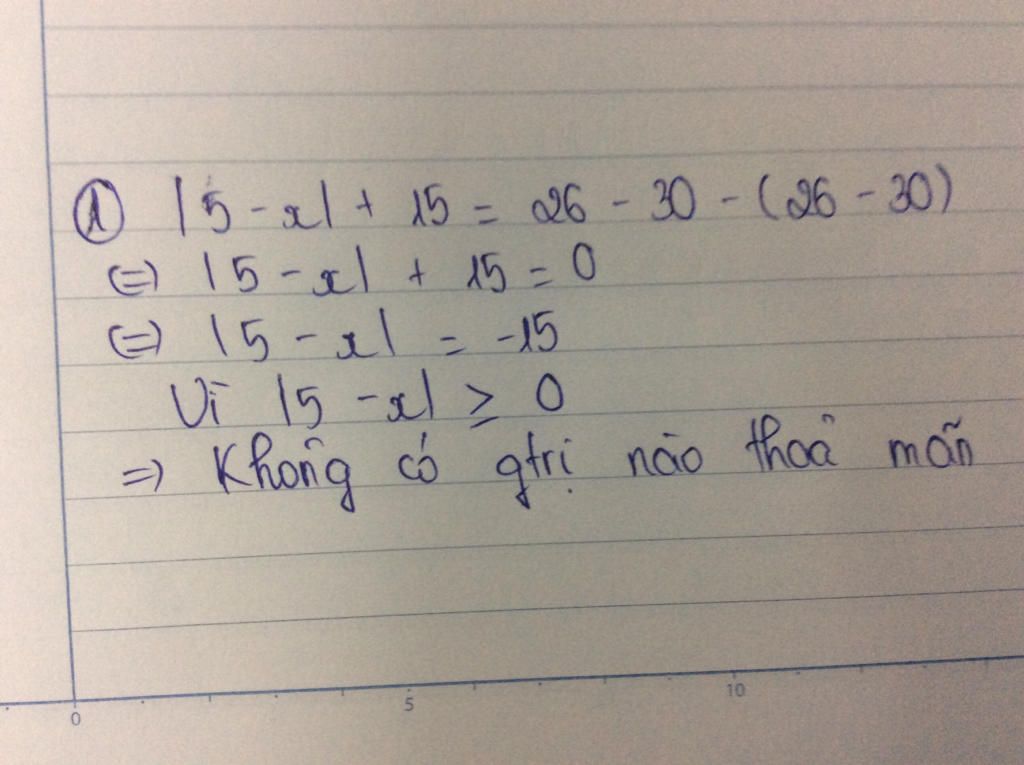 ① |5 - x| + 15 = 26 - 30 - (26 - 30)
(=) |5 - x| + 15 = 0
(=) |5 - x| = -15
Vì |5 - x| ≥ 0
=) Không có gtrị nào thoả mãn
0 5 10